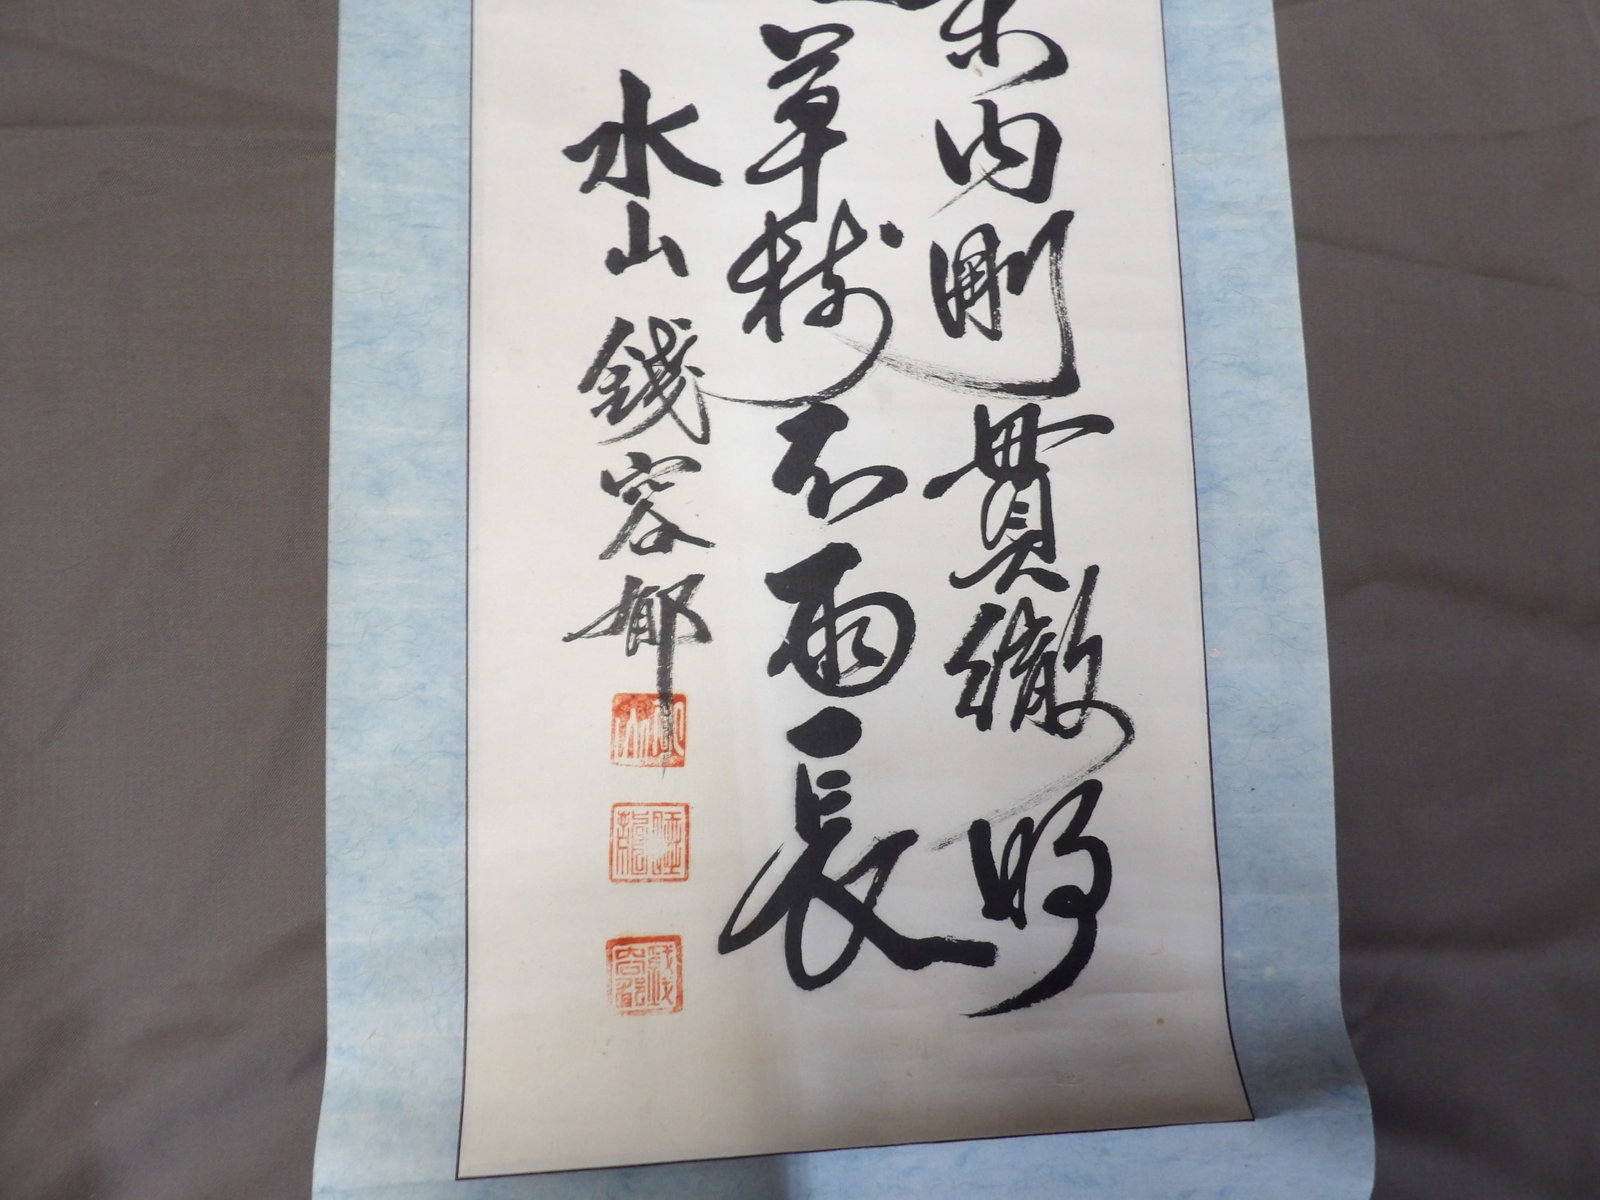 柔内剛貫徹明
草樹不雨長
水山錢容郁